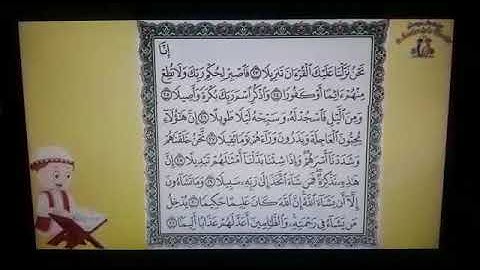 إِنَّا
نَحْنُ نَزَّلْنَا عَلَيْكَ ٱلْقُرْءَانَ تَنزِيلًا ۝٢٣ فَٱصْبِرْ لِحُكْمِ رَبِّكَ وَلَا تُطِعْ
مِنْهُمْ ءَاثِمًا أَوْ كَفُورًا ۝٢٤ وَٱذْكُرِ ٱسْمَ رَبِّكَ بُكْرَةً وَأَصِيلًا ۝٢٥
وَمِنَ ٱلَّيْلِ فَٱسْجُدْ لَهُۥ وَسَبِّحْهُ لَيْلًا طَوِيلًا ۝٢٦ إِنَّ هَٰٓؤُلَآءِ
يُحِبُّونَ ٱلْعَاجِلَةَ وَيَذَرُونَ وَرَآءَهُمْ يَوْمًا ثَقِيلًا ۝٢٧ نَّحْنُ خَلَقْنَٰهُمْ
وَشَدَدْنَآ أَسْرَهُمْ وَإِذَا شِئْنَا بَدَّلْنَآ أَمْثَٰلَهُمْ تَبْدِيلًا ۝٢٨ إِنَّ
هَٰذِهِۦ تَذْكِرَةٌ فَمَن شَآءَ ٱتَّخَذَ إِلَىٰ رَبِّهِۦ سَبِيلًا ۝٢٩ وَمَا تَشَآءُونَ
إِلَّآ أَن يَشَآءَ ٱللَّهُ إِنَّ ٱللَّهَ كَانَ عَلِيمًا حَكِيمًا ۝٣٠ يُدْخِلُ
مَن يَشَآءُ فِى رَحْمَتِهِۦ وَٱلظَّٰلِمِينَ أَعَدَّ لَهُمْ عَذَابًا أَلِيمًۢا ۝٣١